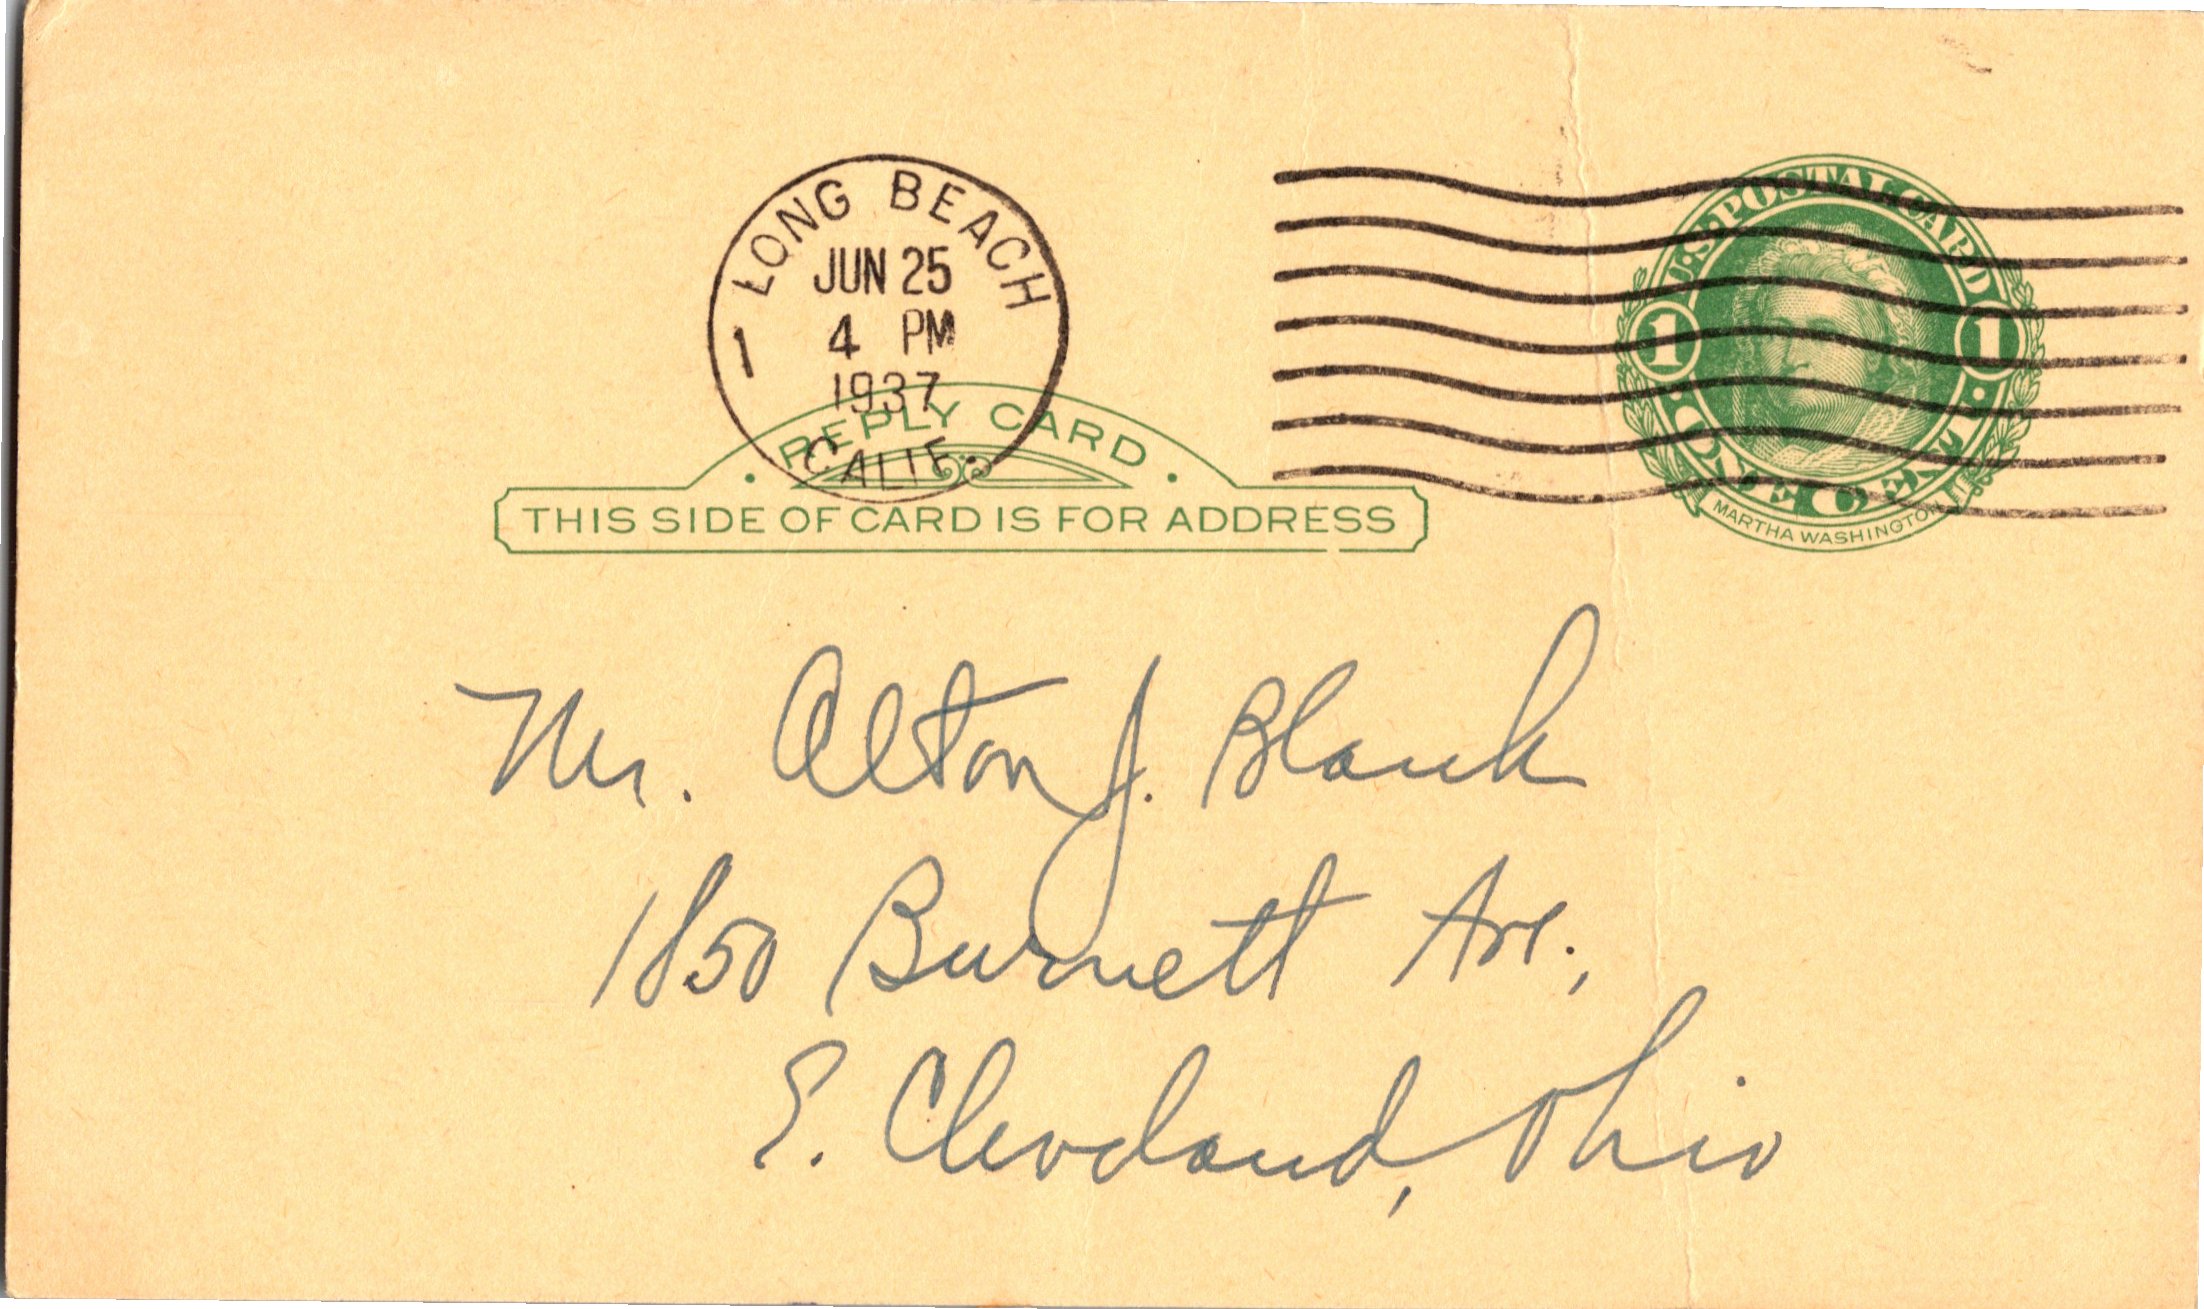 LONG BEACH
JUN 25
4 PM
1
1937
CALIF.
U.S. POSTAL CARD
1 1
ONE CENT
MARTHA WASHINGTON
· REPLY CARD ·
THIS SIDE OF CARD IS FOR ADDRESS
Mr. Alton J. Blank
1850 Burnett Ave.,
E. Cleveland, Ohio